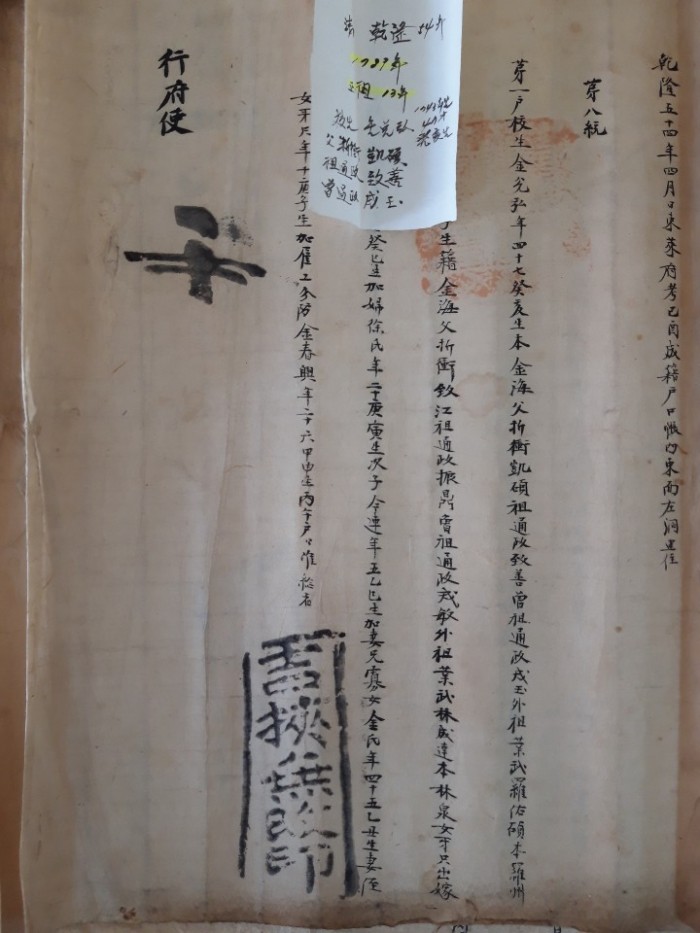 乾隆五十四年四月日東萊府考己酉成籍戶口帳內東面左洞里住
第八統
第一戶校生金光弘年四十七癸亥生本金海父折衝凱碩祖通政致善曾祖通政戎玉外祖業武羅佑碩本羅州
生籍金海父折衝致江祖通政振鼎曾祖通政戎敏外祖業武林成達本林泉女牙只出嫁
癸巳生加婦徐氏年二十庚寅生次子今連年五乙巳生加妻兄寡女金氏年四十五乙丑生妻侄
女牙只年十庚子生加雇工金春興年二十六甲申生丙午戶口准給者
行府使
周挾無改印
乾隆 54年
1789年
正祖 13年
父 折衝 凱碩
祖 通政 致善
曾 通政 戎玉